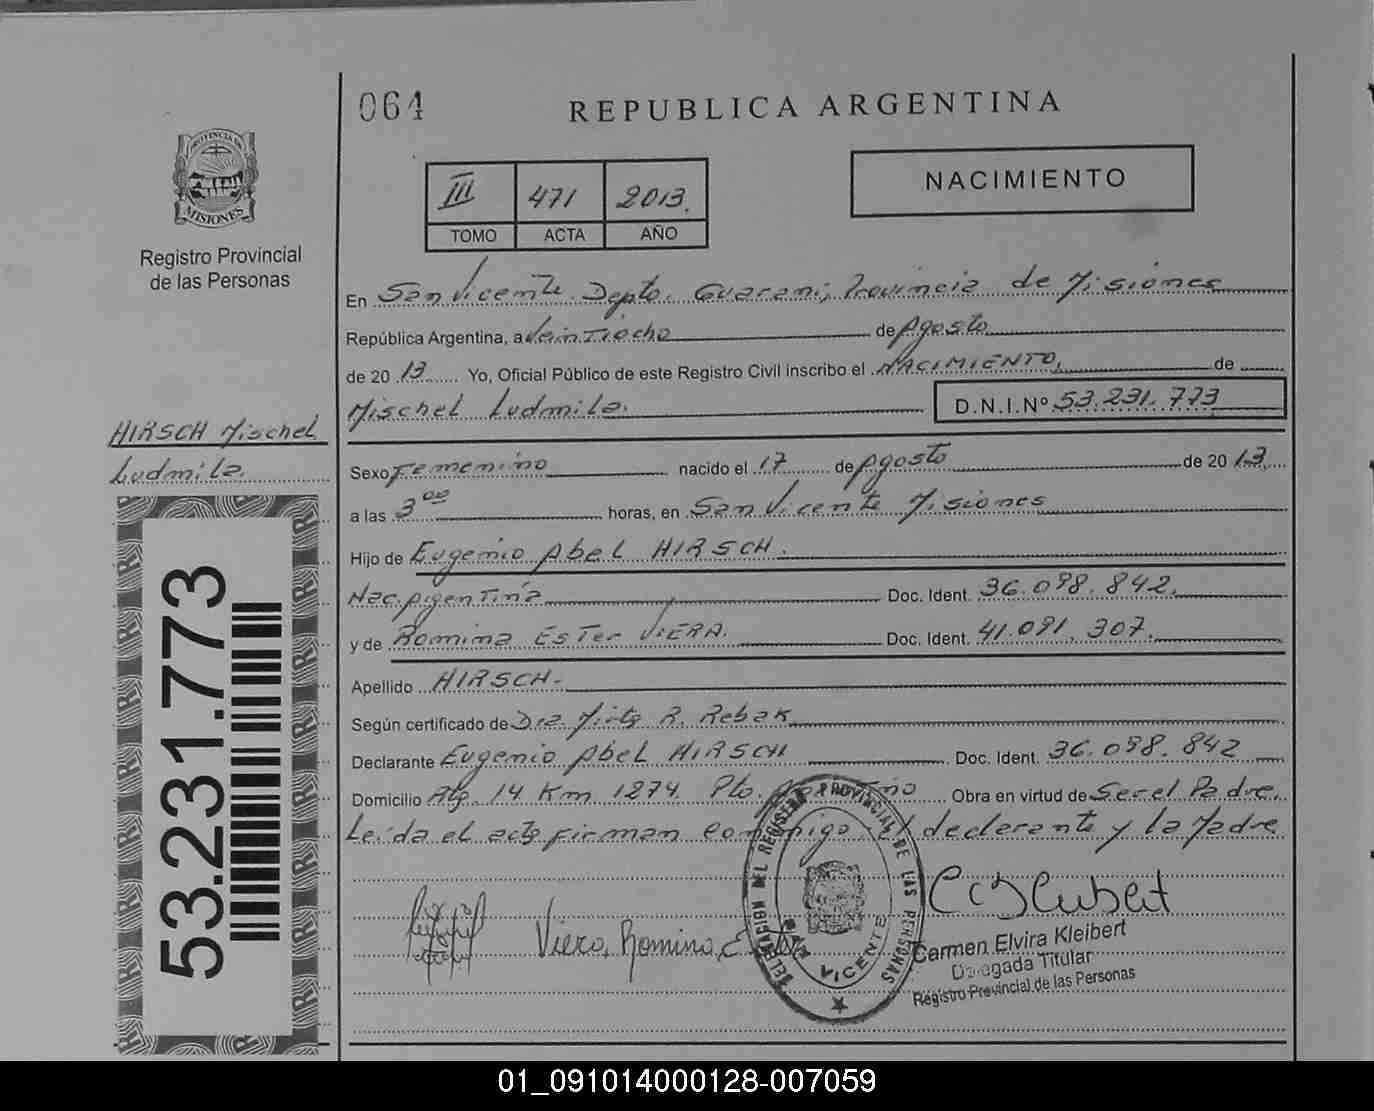 064
REPUBLICA ARGENTINA
PROVINCIA DE
MISIONES
Registro Provincial
de las Personas
III 471 2013.
TOMO ACTA AÑO
NACIMIENTO
En San Vicente Depto. Guarani, Provincia de Misiones
República Argentina, a Veintiocho de Agosto
de 20 13 Yo, Oficial Público de este Registro Civil inscribo el NACIMIENTO, de
Mischel Ludmila. D.N.I.Nº 53.231.773
HIRSCH Mischel
Ludmila.
Sexo Femenino nacido el 17 de Agosto de 20 13
a las 3 00 horas, en San Vicente Misiones
Hijo de Eugenio Abel HIRSCH.
Nac. Argentina Doc. Ident. 36.098.842.
y de Romina Ester VIERA. Doc. Ident. 41.091.307.
Apellido HIRSCH.-
Según certificado de Dra. R. Rebak
Declarante Eugenio Abel HIRSCH Doc. Ident. 36.098.842
Domicilio 14 Km 1274. Pto. Obra en virtud de Ser el Padre.
Leída el acta firman conmigo el declarante y la Madre
53.231.773
Viera, Romina, E
DELEGACION DEL REGISTRO PROVINCIAL DE LAS PERSONAS
SAN VICENTE
Carmen Elvira Kleibert
Delegada Titular
Registro Provincial de las Personas
01_091014000128-007059